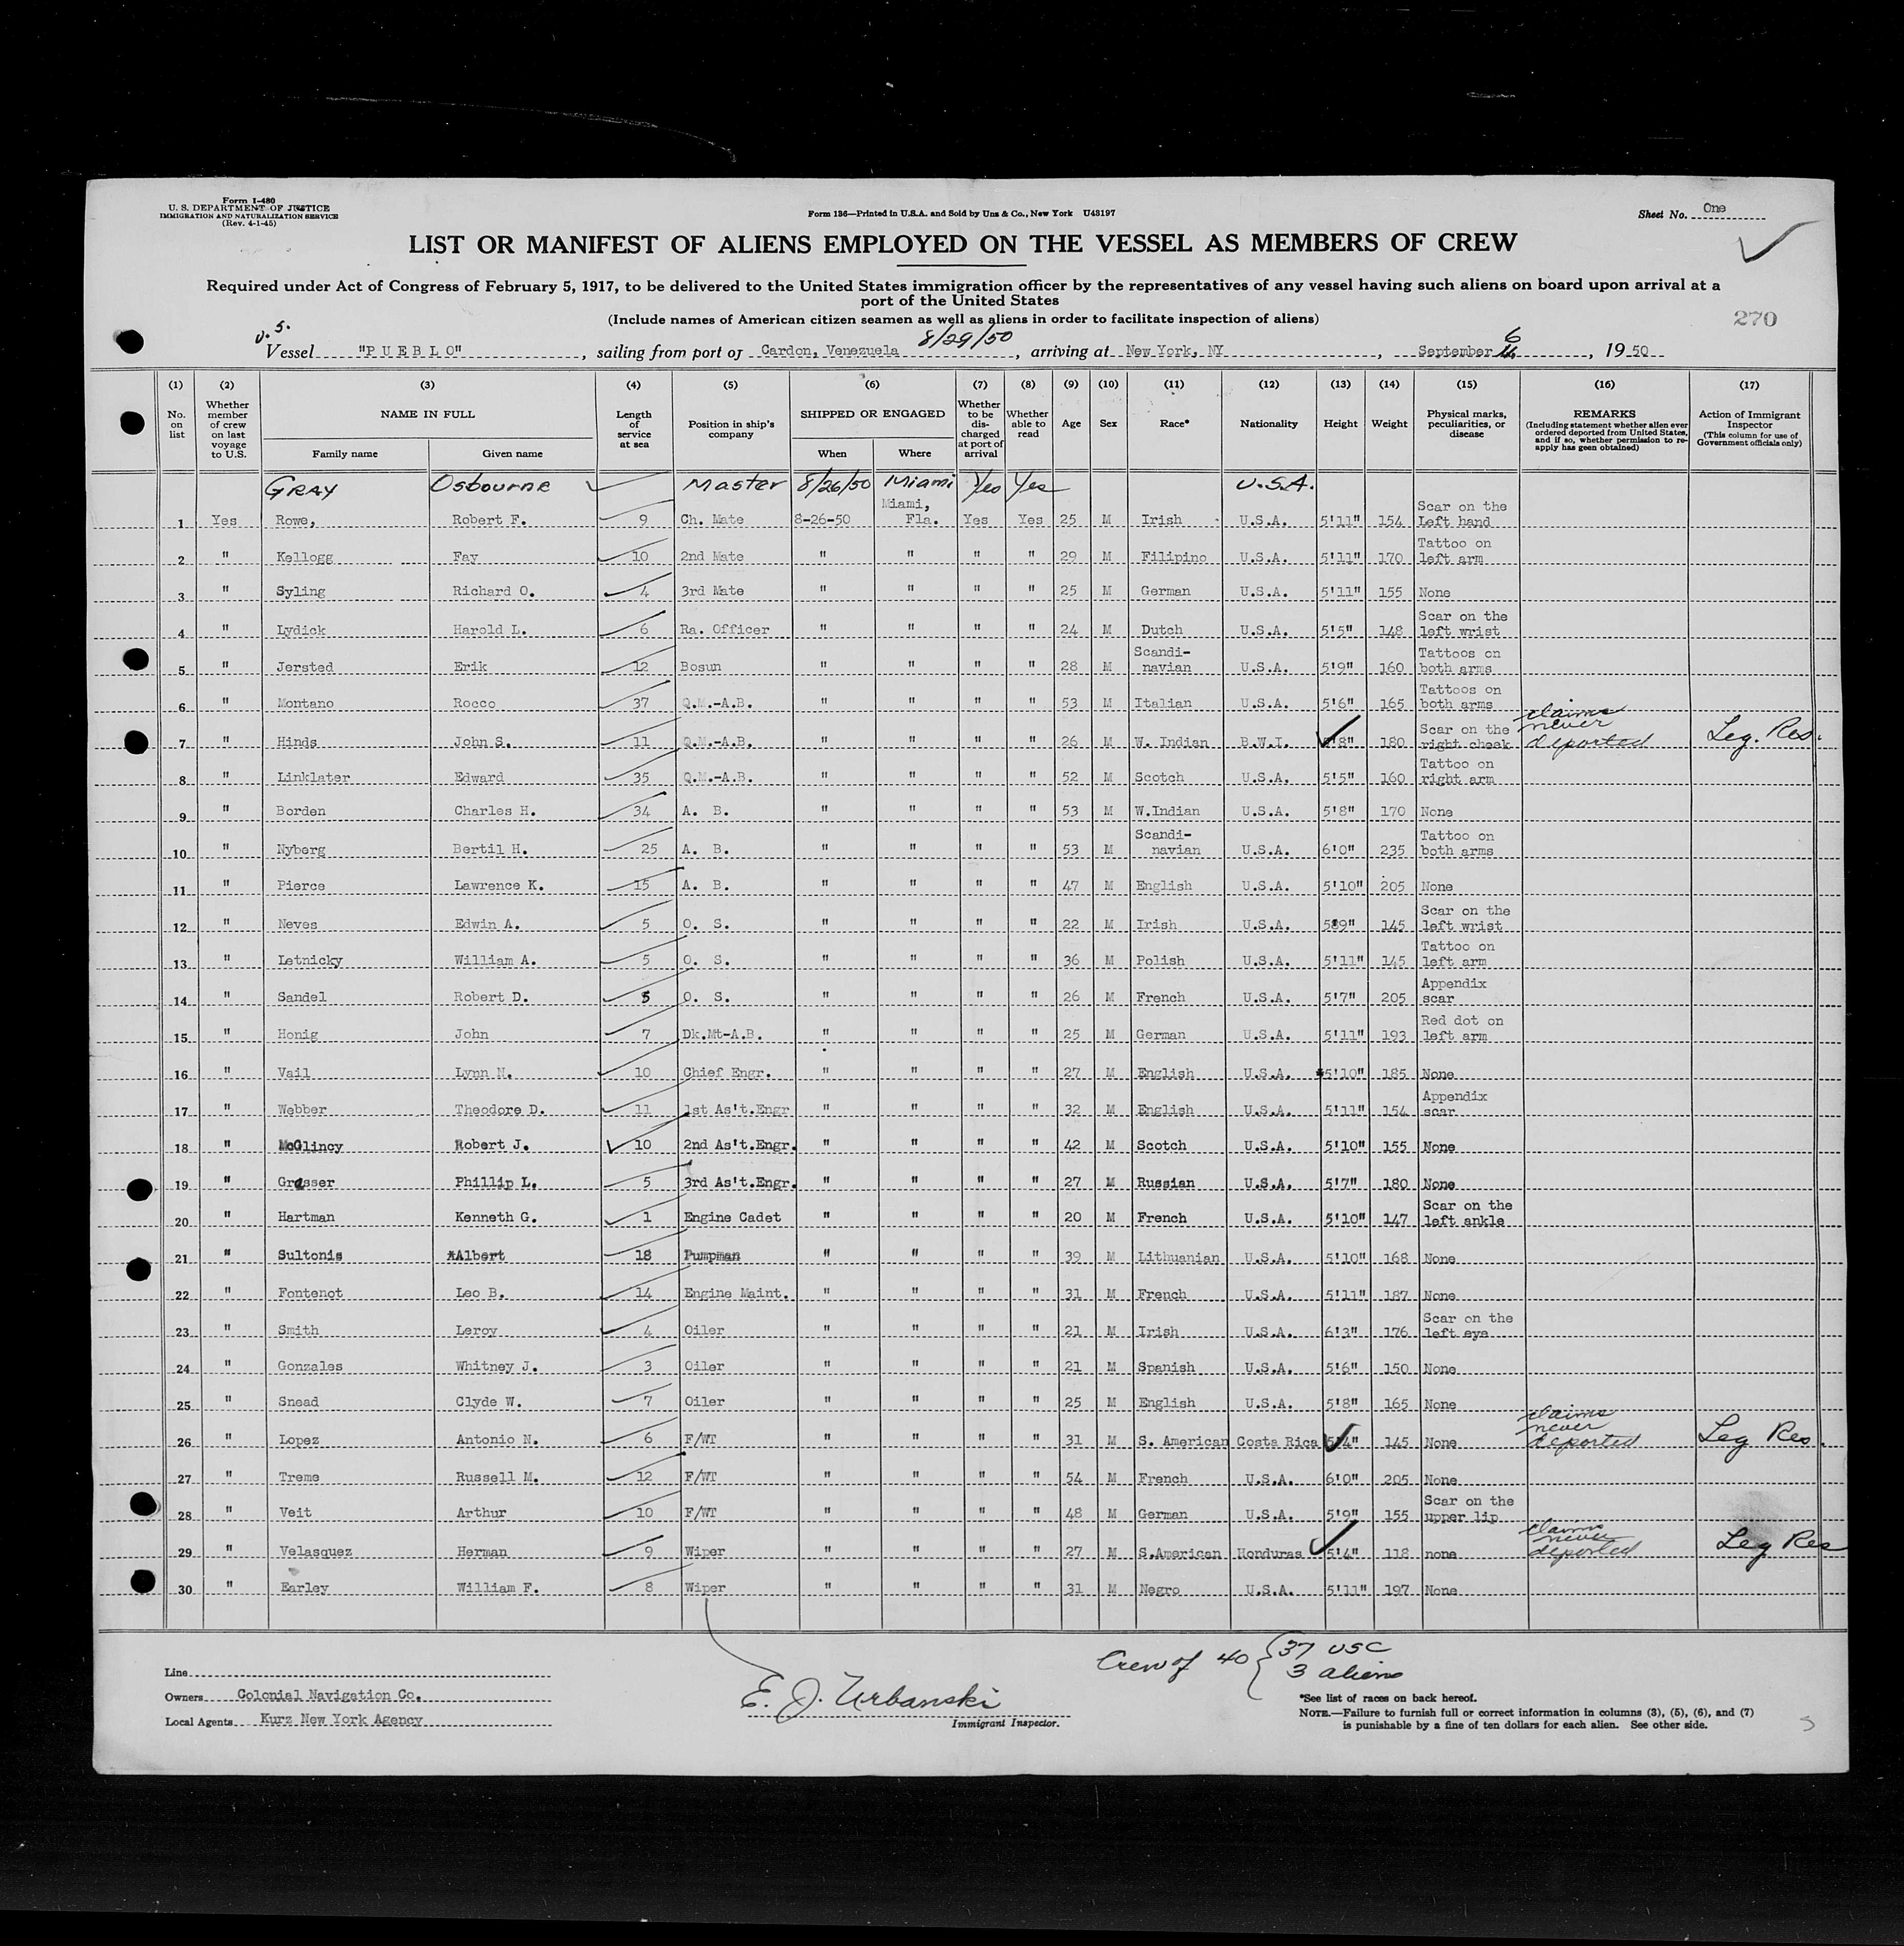 Form I-480
U. S. DEPARTMENT OF JUSTICE
IMMIGRATION AND NATURALIZATION SERVICE
(Rev. 4-1-45)
Form 136—Printed in U.S.A. and Sold by Unz & Co., New York U43197
Sheet No. One
LIST OR MANIFEST OF ALIENS EMPLOYED ON THE VESSEL AS MEMBERS OF CREW
Required under Act of Congress of February 5, 1917, to be delivered to the United States immigration officer by the representatives of any vessel having such aliens on board upon arrival at a
port of the United States
(Include names of American citizen seamen as well as aliens in order to facilitate inspection of aliens)
270
U.S. Vessel "PUEBLO", sailing from port of Cardon, Venezuela 8/29/50, arriving at New York, NY, September 6, 1950
(1) (2) (3) (4) (5) (6) (7) (8) (9) (10) (11) (12) (13) (14) (15) (16) (17)
No. on list Whether member of crew on last voyage to U.S. NAME IN FULL Family name Given name Length of service at sea Position in ship's company SHIPPED OR ENGAGED When Where Whether to be discharged at port of arrival Whether able to read Age Sex Race* Nationality Height Weight Physical marks, peculiarities, or disease REMARKS (Including statement whether alien ever ordered deported from United States, and if so, whether permission to reapply has geen obtained) Action of Immigrant Inspector (This column for use of Government officials only)
GRAY Osbourne Master 8/26/50 Miami Yes Yes U.S.A.
1 Yes Rowe, Robert F. 9 Ch. Mate 8-26-50 Miami, Fla. Yes Yes 25 M Irish U.S.A. 5'11" 154 Scar on the Left hand
2 " Kellogg Fay 10 2nd Mate " " " " 29 M Filipino U.S.A. 5'11" 170 Tattoo on left arm
3 " Syling Richard O. 4 3rd Mate " " " " 25 M German U.S.A. 5'11" 155 None
4 " Lydick Harold L. 6 Ra. Officer " " " " 24 M Dutch U.S.A. 5'5" 148 Scar on the left wrist
5 " Jersted Erik 12 Bosun " " " " 28 M Scandi-navian U.S.A. 5'9" 160 Tattoos on both arms
6 " Montano Rocco 37 Q.M.-A.B. " " " " 53 M Italian U.S.A. 5'6" 165 Tattoos on both arms
7 " Hinds John S. 11 Q.M.-A.B. " " " " 26 M W. Indian B.W.I. 5'8" 180 Scar on the right cheak claims never deported Leg. Res.
8 " Linklater Edward 35 Q.M.-A.B. " " " " 52 M Scotch U.S.A. 5'5" 160 Tattoo on right arm
9 " Borden Charles H. 34 A. B. " " " " 53 M W.Indian U.S.A. 5'8" 170 None
10 " Nyberg Bertil H. 25 A. B. " " " " 53 M Scandi-navian U.S.A. 6'0" 235 Tattoo on both arms
11 " Pierce Lawrence K. 15 A. B. " " " " 47 M English U.S.A. 5'10" 205 None
12 " Neves Edwin A. 5 O. S. " " " " 22 M Irish U.S.A. 5'9" 145 Scar on the left wrist
13 " Letnicky William A. 5 O. S. " " " " 36 M Polish U.S.A. 5'11" 145 Tattoo on left arm
14 " Sandel Robert D. 5 O. S. " " " " 26 M French U.S.A. 5'7" 205 Appendix scar
15 " Honig John 7 Dk.Mt-A.B. " " " " 25 M German U.S.A. 5'11" 193 Red dot on left arm
16 " Vail Lynn N. 10 Chief Engr. " " " " 27 M English U.S.A. 5'10" 185 None
17 " Webber Theodore D. 11 1st As't.Engr " " " " 32 M English U.S.A. 5'11" 154 Appendix scar
18 " McGlincy Robert J. 10 2nd As't.Engr. " " " " 42 M Scotch U.S.A. 5'10" 155 None
19 " Grasser Phillip L. 5 3rd As't.Engr. " " " " 27 M Russian U.S.A. 5'7" 180 None
20 " Hartman Kenneth G. 1 Engine Cadet " " " " 20 M French U.S.A. 5'10" 147 Scar on the left ankle
21 " Sultonis Albert 18 Pumpman " " " " 39 M Lithuanian U.S.A. 5'10" 168 None
22 " Fontenot Leo B. 14 Engine Maint. " " " " 31 M French U.S.A. 5'11" 187 None
23 " Smith Leroy 4 Oiler " " " " 21 M Irish U.S.A. 6'3" 176 Scar on the left eye
24 " Gonzales Whitney J. 3 Oiler " " " " 21 M Spanish U.S.A. 5'6" 150 None
25 " Snead Clyde W. 7 Oiler " " " " 25 M English U.S.A. 5'8" 165 None
26 " Lopez Antonio N. 6 F/WT " " " " 31 M S. American Costa Rica 5'4" 145 None claims never deported Leg Res.
27 " Treme Russell M. 12 F/WT " " " " 54 M French U.S.A. 6'0" 205 None
28 " Veit Arthur 10 F/WT " " " " 48 M German U.S.A. 5'9" 155 Scar on the upper lip
29 " Velasquez Herman 9 Wiper " " " " 27 M S.American Honduras 5'4" 118 none claims never deported Leg Res
30 " Earley William F. 8 Wiper " " " " 31 M Negro U.S.A. 5'11" 197 None
Crew of 40 { 37 USC
3 aliens
Line
Owners Colonial Navigation Co.
Local Agents Kurz New York Agency
E. J. Urbanski
Immigrant Inspector.
*See list of races on back hereof.
NOTE.—Failure to furnish full or correct information in columns (3), (5), (6), and (7)
is punishable by a fine of ten dollars for each alien. See other side.